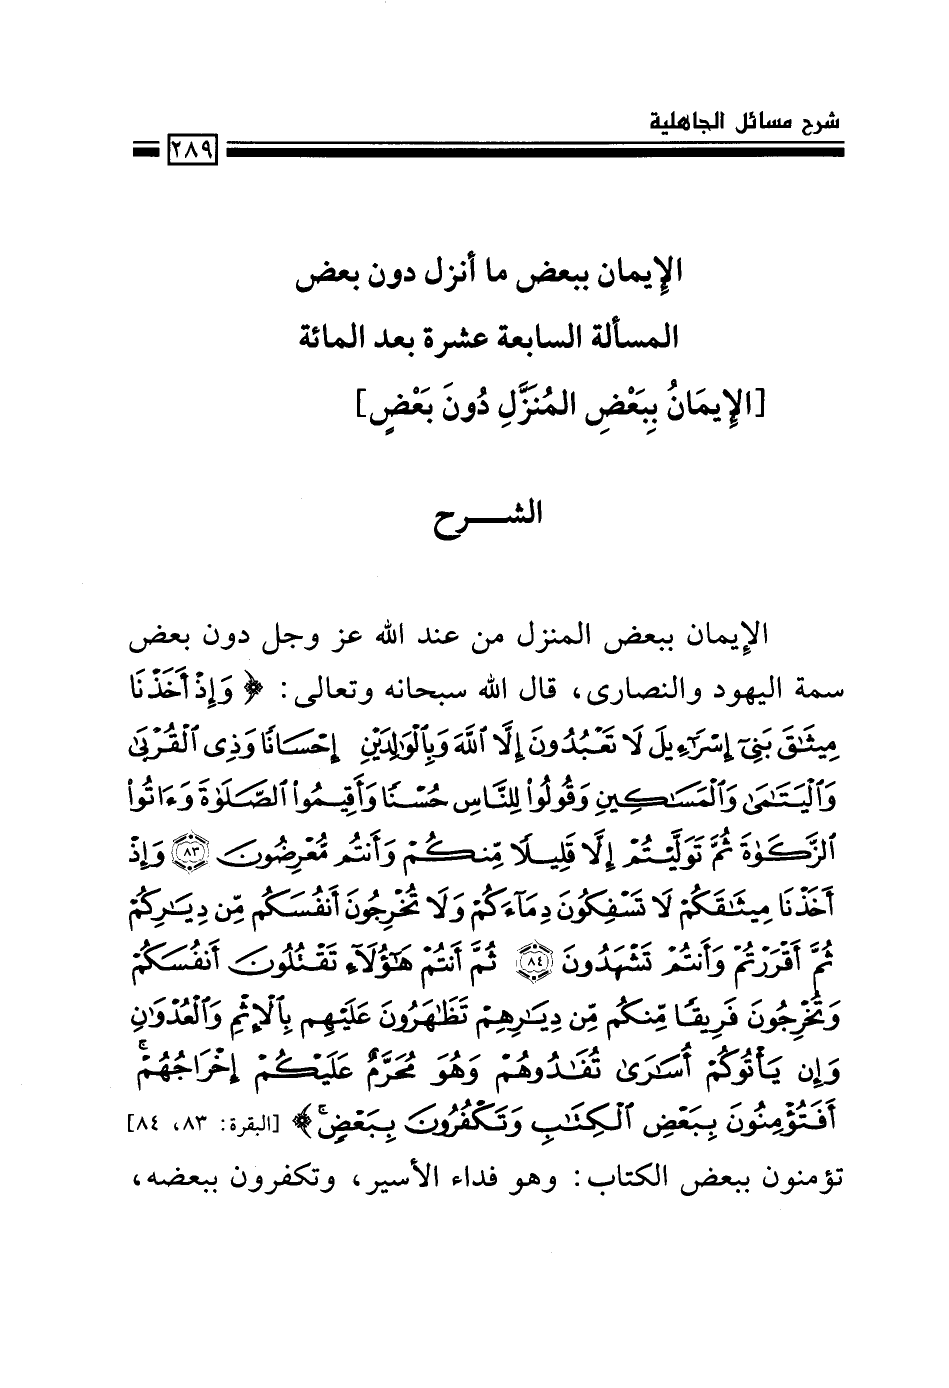 شرح مسائل الجاهلية
٢٨٩
الإيمان ببعض ما أنزل دون بعض
المسألة السابعة عشرة بعد المائة
[الإِيمَانُ بِبَعْضِ المُنَزَّلِ دُونَ بَعْضٍ]
الشـــرح
الإيمان ببعض المنزل من عند الله عز وجل دون بعض
سمة اليهود والنصارى، قال الله سبحانه وتعالى: ﴿ وَإِذْ أَخَذْنَا
مِيثَٰقَ بَنِىٓ إِسْرَٰٓءِيلَ لَا تَعْبُدُونَ إِلَّا ٱللَّهَ وَبِٱلْوَٰلِدَيْنِ إِحْسَانًا وَذِى ٱلْقُرْبَىٰ
وَٱلْيَتَٰمَىٰ وَٱلْمَسَٰكِينِ وَقُولُوا۟ لِلنَّاسِ حُسْنًا وَأَقِيمُوا۟ ٱلصَّلَوٰةَ وَءَاتُوا۟
ٱلزَّكَوٰةَ ثُمَّ تَوَلَّيْتُمْ إِلَّا قَلِيلًا مِّنكُمْ وَأَنتُم مُّعْرِضُونَ ٨٣ وَإِذْ
أَخَذْنَا مِيثَٰقَكُمْ لَا تَسْفِكُونَ دِمَآءَكُمْ وَلَا تُخْرِجُونَ أَنفُسَكُم مِّن دِيَٰرِكُمْ
ثُمَّ أَقْرَرْتُمْ وَأَنتُمْ تَشْهَدُونَ ٨٤ ثُمَّ أَنتُمْ هَٰٓؤُلَآءِ تَقْتُلُونَ أَنفُسَكُمْ
وَتُخْرِجُونَ فَرِيقًا مِّنكُم مِّن دِيَٰرِهِمْ تَظَٰهَرُونَ عَلَيْهِم بِٱلْإِثْمِ وَٱلْعُدْوَٰنِ
وَإِن يَأْتُوكُمْ أُسَٰرَىٰ تُفَٰدُوهُمْ وَهُوَ مُحَرَّمٌ عَلَيْكُمْ إِخْرَاجُهُمْ ۚ
أَفَتُؤْمِنُونَ بِبَعْضِ ٱلْكِتَٰبِ وَتَكْفُرُونَ بِبَعْضٍ ۚ ﴾ [البقرة: ٨٣، ٨٤]
تؤمنون ببعض الكتاب: وهو فداء الأسير، وتكفرون ببعضه،